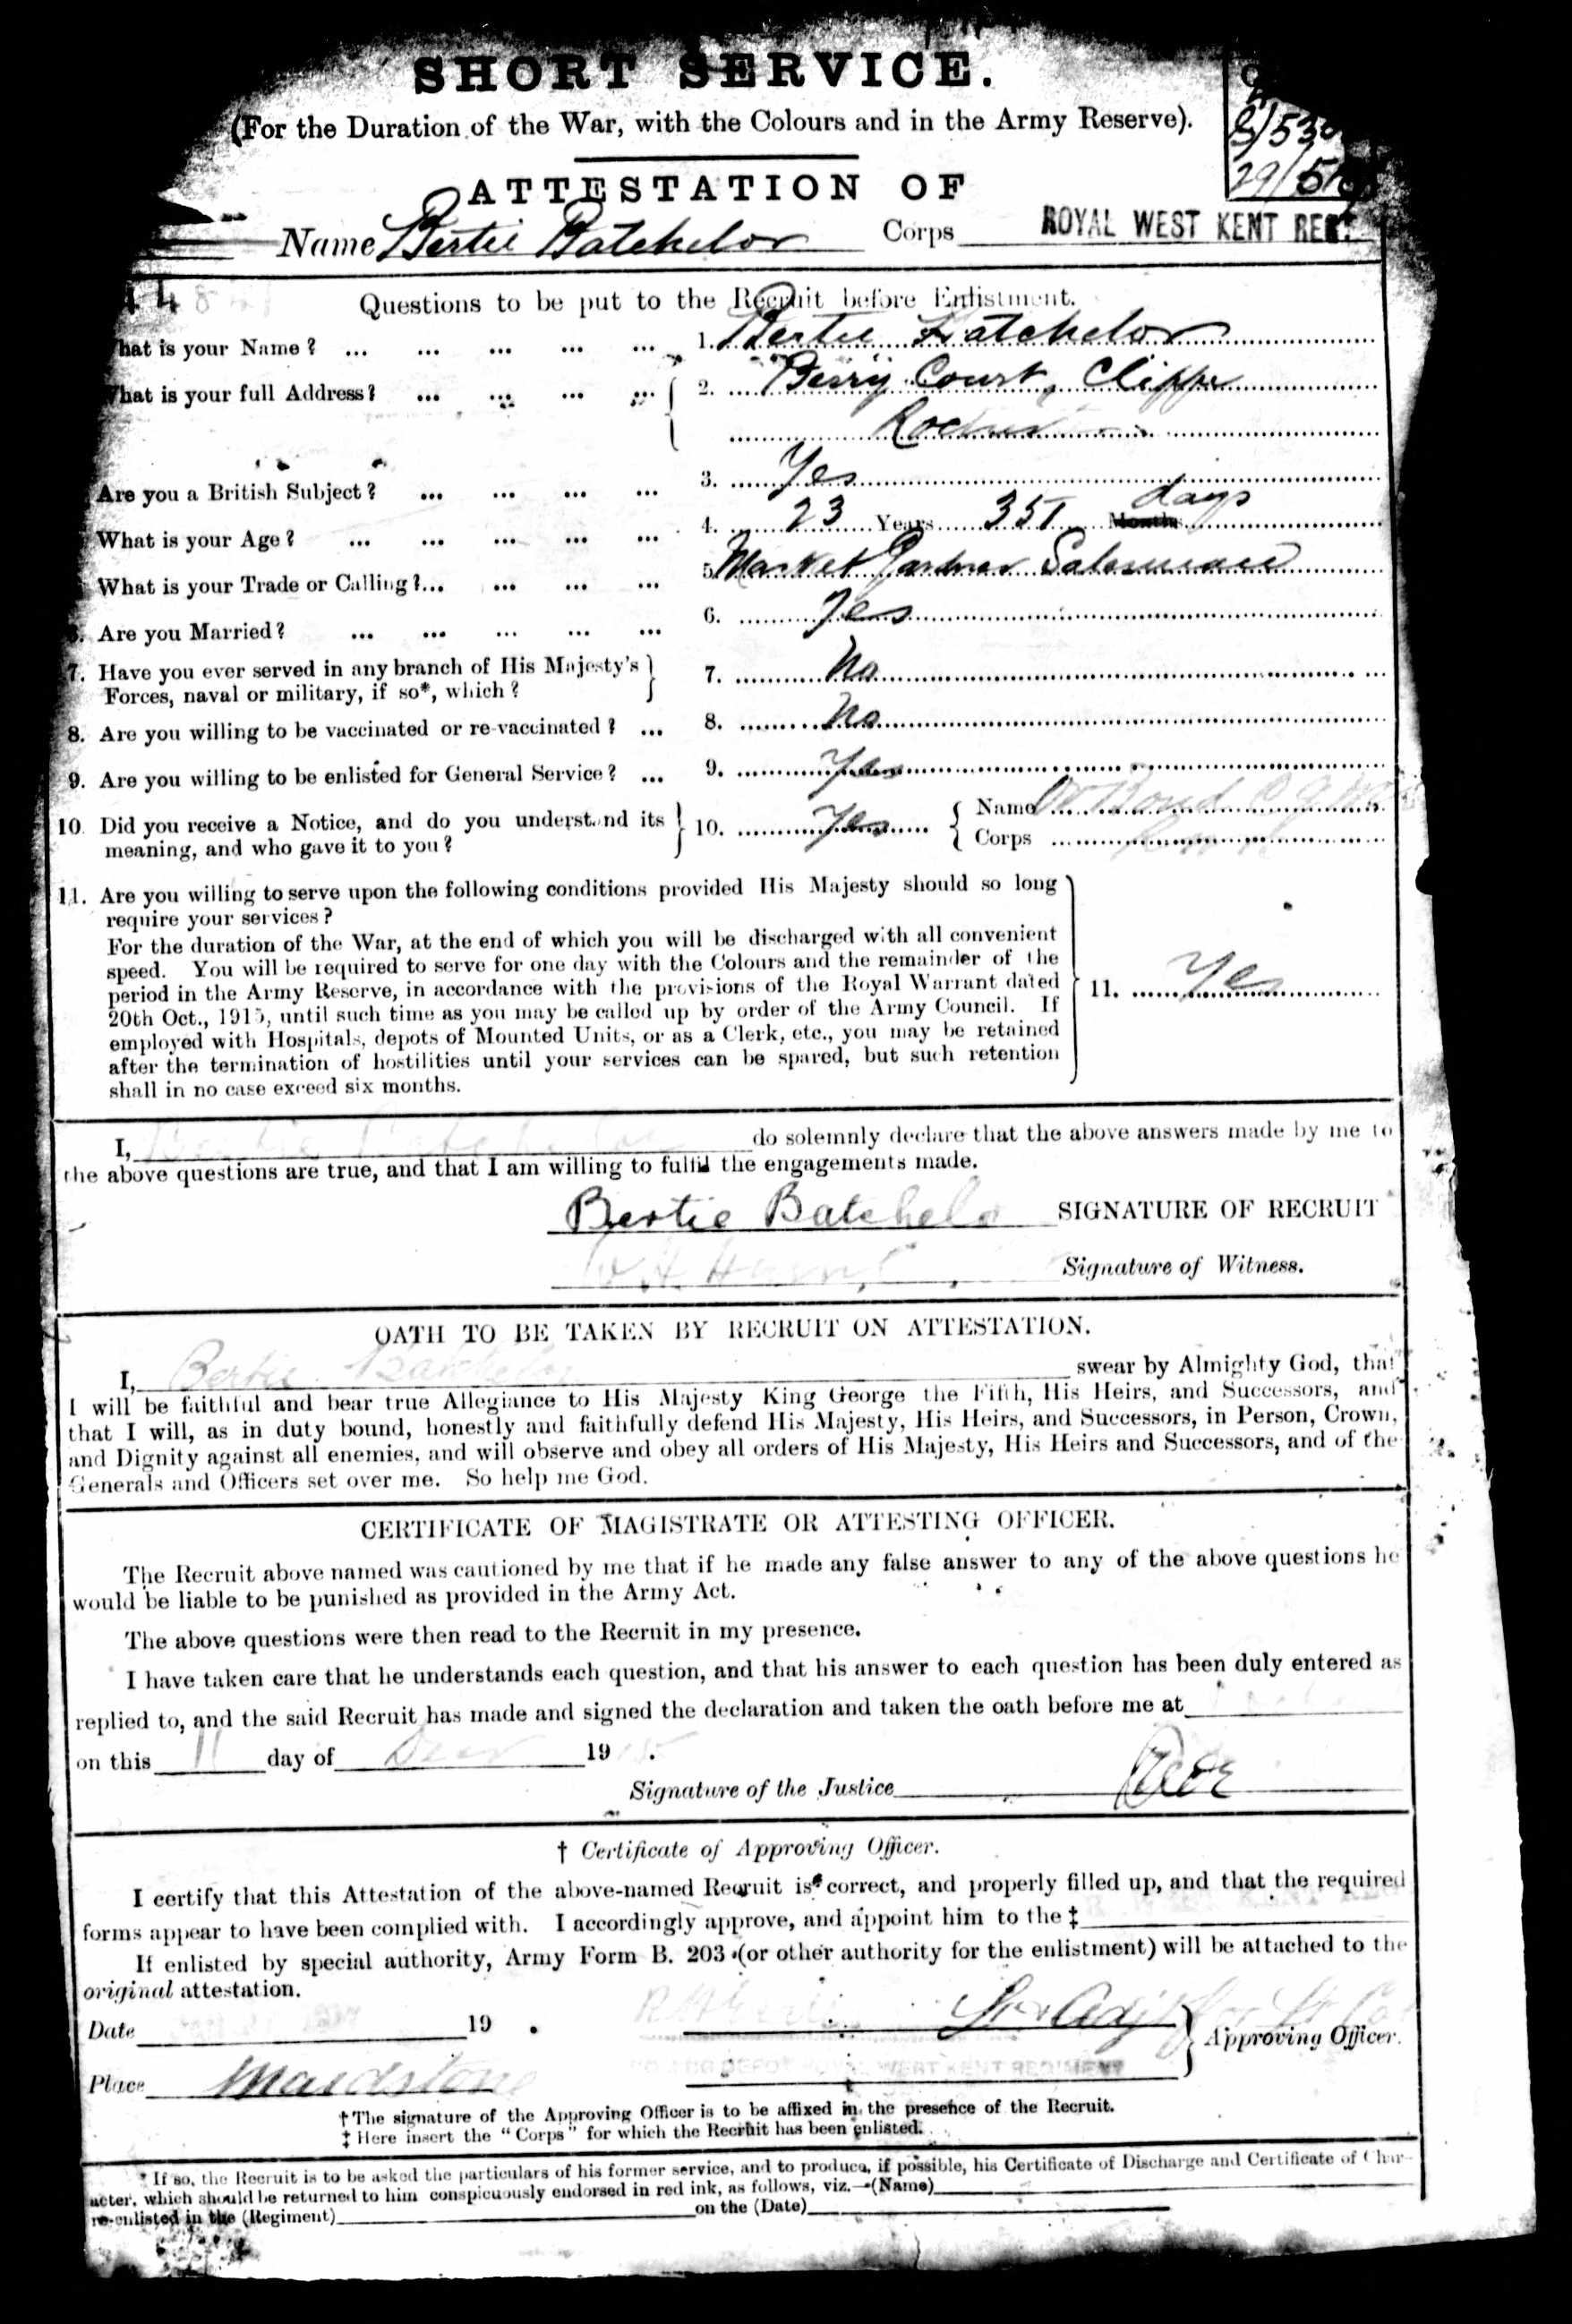 SHORT SERVICE.
(For the Duration of the War, with the Colours and in the Army Reserve).
ATTESTATION OF
Name Bertie Batchelor Corps ROYAL WEST KENT REGT.
Questions to be put to the Recruit before Enlistment.
What is your Name? ... ... ... ... ... 1. Bertie Batchelor
What is your full Address? ... ... ... ... 2. Berry Court, Cliffe
Are you a British Subject? ... ... ... ... 3. Yes
What is your Age? ... ... ... ... ... 4. 23 Years 351 Months days
What is your Trade or Calling?... ... ... ... 5. Market Gardner Salesman
Are you Married? ... ... ... ... ... 6. Yes
7. Have you ever served in any branch of His Majesty's
Forces, naval or military, if so*, which? 7. No
8. Are you willing to be vaccinated or re-vaccinated? ... 8. No
9. Are you willing to be enlisted for General Service? ... 9. Yes
10. Did you receive a Notice, and do you understand its
meaning, and who gave it to you? 10. Yes Name
Corps
11. Are you willing to serve upon the following conditions provided His Majesty should so long
require your services?
For the duration of the War, at the end of which you will be discharged with all convenient
speed. You will be required to serve for one day with the Colours and the remainder of the
period in the Army Reserve, in accordance with the provisions of the Royal Warrant dated 11. Yes
20th Oct., 1915, until such time as you may be called up by order of the Army Council. If
employed with Hospitals, depots of Mounted Units, or as a Clerk, etc., you may be retained
after the termination of hostilities until your services can be spared, but such retention
shall in no case exceed six months.
I, Bertie Batchelor do solemnly declare that the above answers made by me to
the above questions are true, and that I am willing to fulfil the engagements made.
Bertie Batchelor SIGNATURE OF RECRUIT
Signature of Witness.
OATH TO BE TAKEN BY RECRUIT ON ATTESTATION.
I, Bertie Batchelor swear by Almighty God, that
I will be faithful and bear true Allegiance to His Majesty King George the Fifth, His Heirs, and Successors, and
that I will, as in duty bound, honestly and faithfully defend His Majesty, His Heirs, and Successors, in Person, Crown,
and Dignity against all enemies, and will observe and obey all orders of His Majesty, His Heirs and Successors, and of the
Generals and Officers set over me. So help me God.
CERTIFICATE OF MAGISTRATE OR ATTESTING OFFICER.
The Recruit above named was cautioned by me that if he made any false answer to any of the above questions he
would be liable to be punished as provided in the Army Act.
The above questions were then read to the Recruit in my presence.
I have taken care that he understands each question, and that his answer to each question has been duly entered as
replied to, and the said Recruit has made and signed the declaration and taken the oath before me at
on this 11 day of Decr 1915.
Signature of the Justice
† Certificate of Approving Officer.
I certify that this Attestation of the above-named Recruit is correct, and properly filled up, and that the required
forms appear to have been complied with. I accordingly approve, and appoint him to the ‡
If enlisted by special authority, Army Form B. 203 (or other authority for the enlistment) will be attached to the
original attestation.
Date 19 .
Approving Officer.
Place Maidstone
† The signature of the Approving Officer is to be affixed in the presence of the Recruit.
‡ Here insert the "Corps" for which the Recruit has been enlisted.
* If so, the Recruit is to be asked the particulars of his former service, and to produce, if possible, his Certificate of Discharge and Certificate of Char-
acter, which should be returned to him conspicuously endorsed in red ink, as follows, viz.—(Name)
re-enlisted in the (Regiment) on the (Date)